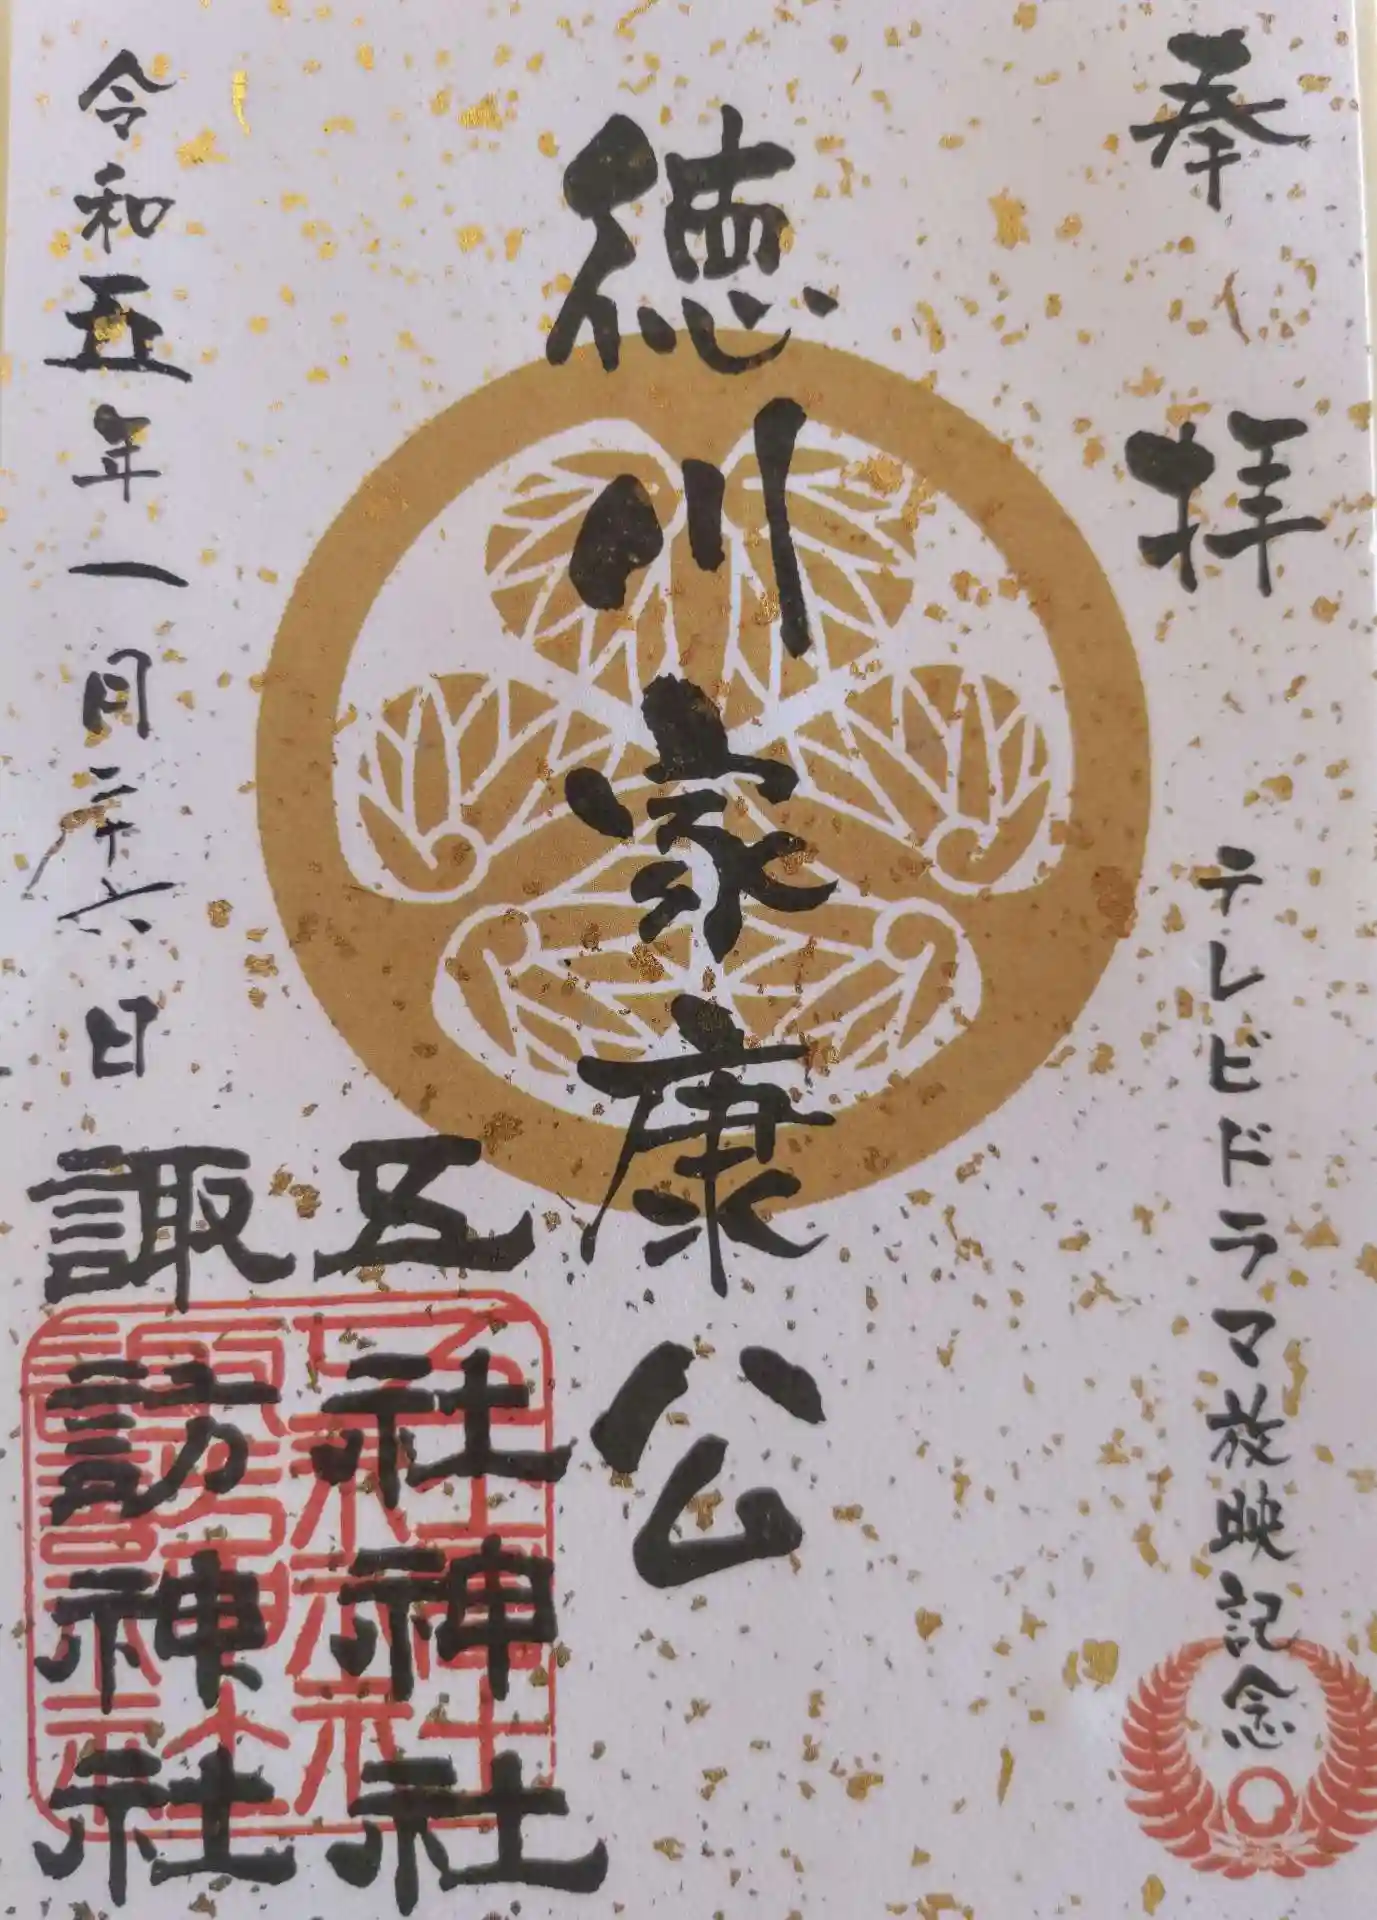 奉拝
テレビドラマ放映記念
徳川家康公
五社神社
諏訪神社
令和五年一月二十六日